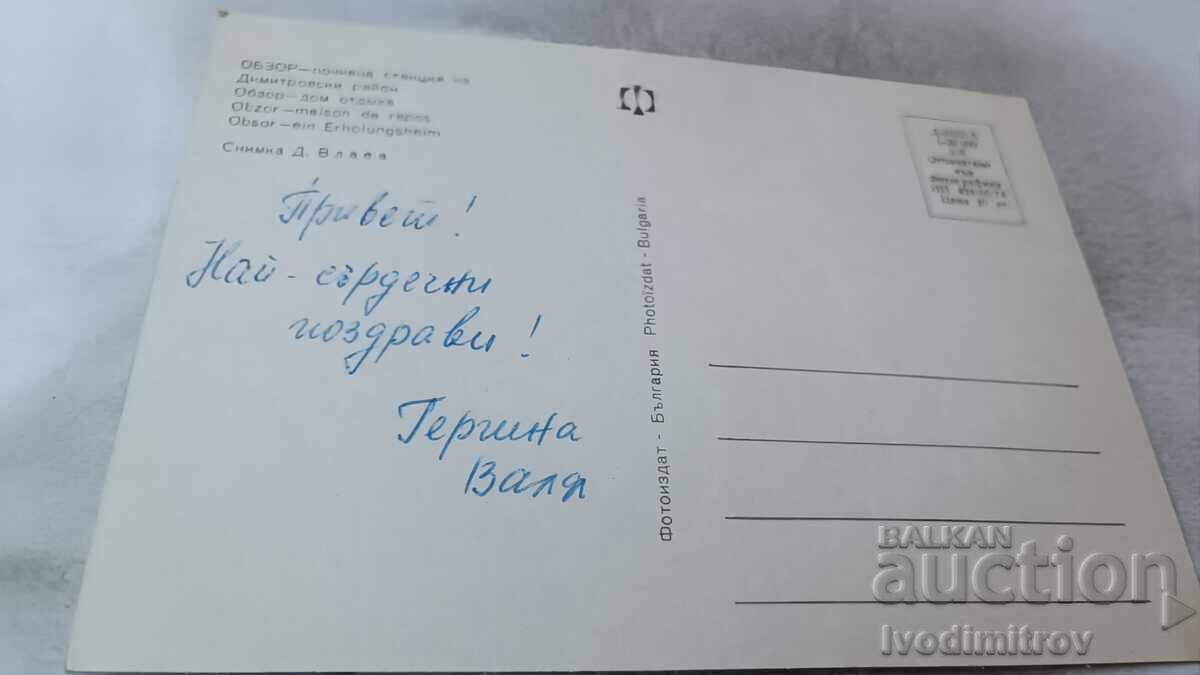 ОБЗОР—почивна станция на
Димитровски район
Обзор—дом отдыха
Obzor—maison de repos
Obsor—ein Erholungsheim
Снимка Д. Влаев
Привет!
Най-сърдечни
поздрави!
Гергина
Валя
Фотоиздат - България Photoizdat - Bulgaria
Цена
BALKAN
auction
Ivodimitrov